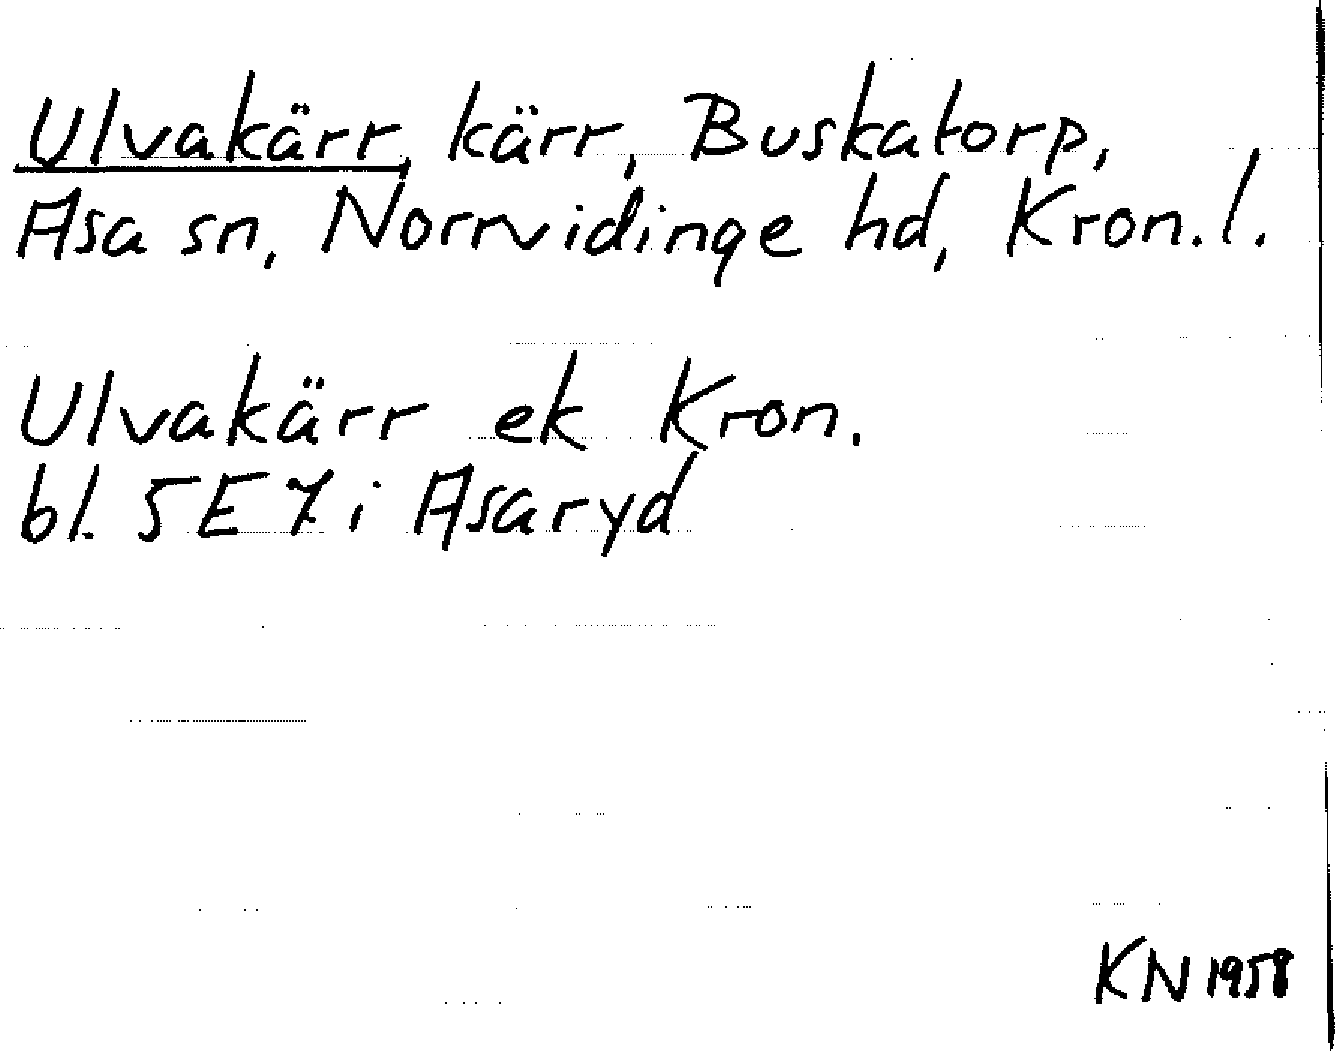 Ulvakärr, kärr, Buskatorp,
Asa sn, Norrvidinge hd, Kron. l.
Ulvakärr ek Kron.
bl. 5E7i Asaryd
KN 1958